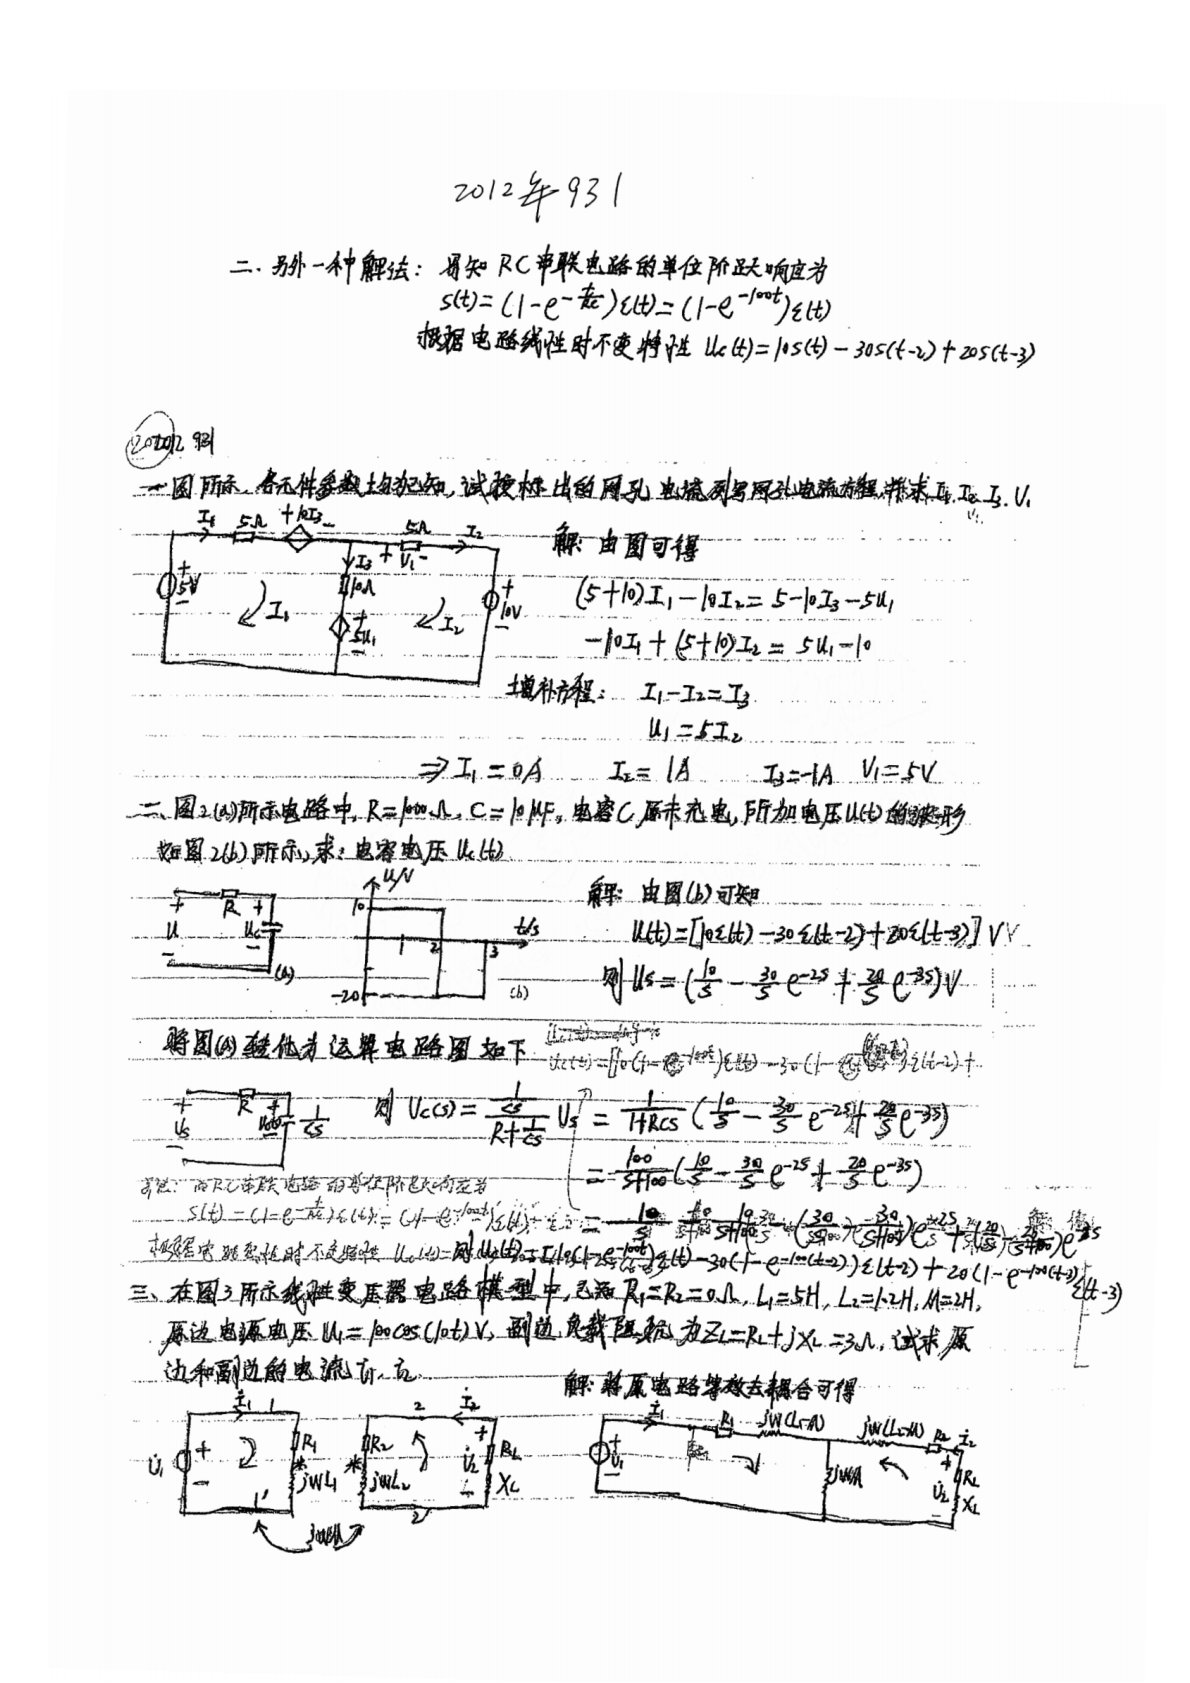 2012年931
二、另外一种解法：易知RC串联电路的单位阶跃响应为
s(t)=(1-e^{-t/RC})ε(t)=(1-e^{-100t})ε(t)
根据电路线性时不变特性 Uc(t)=10s(t)-30s(t-2)+20s(t-3)
2012 931
一、图所示，各元件参数均为已知，试按标出的网孔电流列写网孔电流方程，并求I₁、I₂、I₃、V₁
I₁ 5Ω +10I₃- 5Ω I₂
I₃ + V₁ -
+ 5V - 10Ω + 10V -
I₁ + 5U₁ - I₂
解：由图可得
(5+10)I₁-10I₂=5-10I₃-5U₁
-10I₁+(5+10)I₂=5U₁-10
增补方程：I₁-I₂=I₃
U₁=5I₂
⇒I₁=0A I₂=1A I₃=-1A V₁=5V
二、图2(a)所示电路中，R=1000Ω，C=10μF，电容C原未充电，所加电压U(t)的波形
如图2(b)所示，求：电容电压Uc(t)
+ R +
U Uc
- -
(a)
U/V
10
1 2 3 t/s
-20 (b)
解：由图(b)可知
U(t)=[10ε(t)-30ε(t-2)+20ε(t-3)]V
则Us=(10/s-30/s e^{-2s}+20/s e^{-3s})V
将图(a)转化为运算电路图如下
+ R +
Us 1/cs
-
则Uc(s)=\frac{1/cs}{R+1/cs}Us=\frac{1}{1+RCs}(10/s-30/s e^{-2s}+20/s e^{-3s})
=\frac{100}{s+100}(10/s-30/s e^{-2s}+20/s e^{-3s})
RC串联电路的单位阶跃响应为
s(t)=(1-e^{-t/RC})ε(t)=(1-e^{-100t})ε(t)
根据电路线性时不变特性
-30(1-e^{-100(t-2)})ε(t-2)+20(1-e^{-100(t-3)})ε(t-3)
三、在图3所示线性变压器电路模型中，已知R₁=R₂=0Ω，L₁=5H，L₂=1.2H，M=2H，
原边电源电压U₁=100cos(10t)V，副边负载阻抗为Z_L=R_L+jX_L=3Ω，试求原
边和副边的电流i₁、i₂
解：将原电路等效去耦合可得
İ₁ 1 2 İ₂
U̇₁ + - R₁ * jwL₁ R₂ * jwL₂ + U̇₂ - R_L X_L
1' 2'
jwM
İ₁ R₁ jw(L₁-M) jw(L₂-M) R₂ İ₂
+ U̇₁ - jwM + U̇₂ - R_L X_L